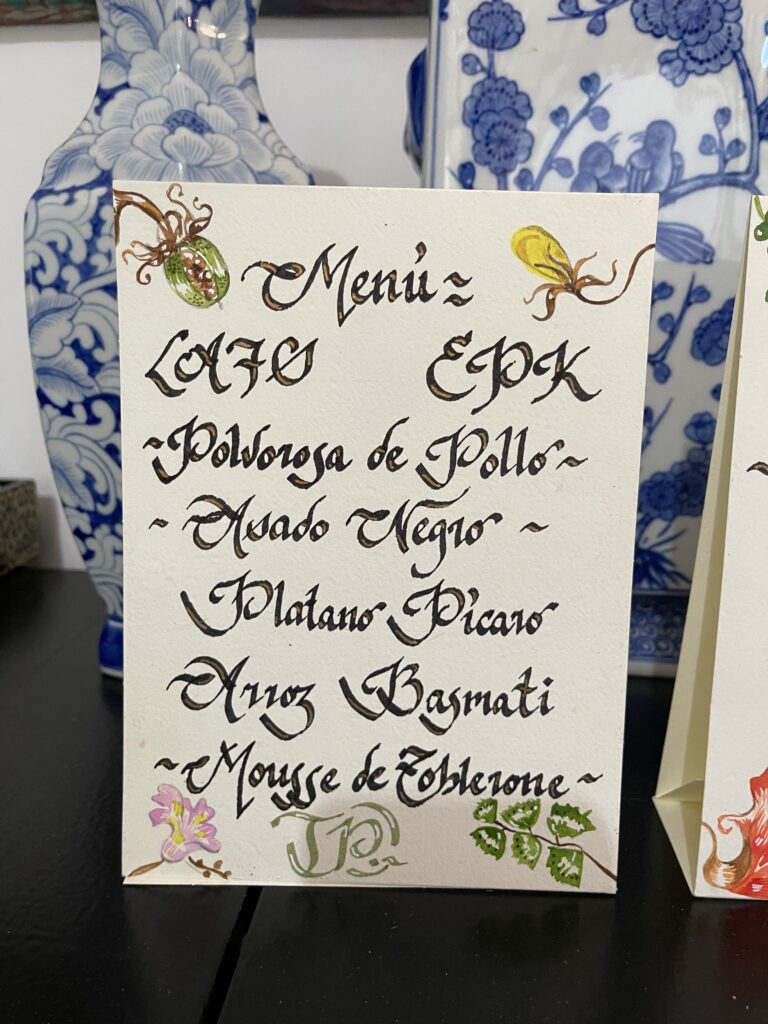 Menú ~
LAFS EPK
~ Polvorosa de Pollo ~
~ Asado Negro ~
Platano Pícaro
Arroz Basmati
~ Mousse de Toblerone ~
TP.~